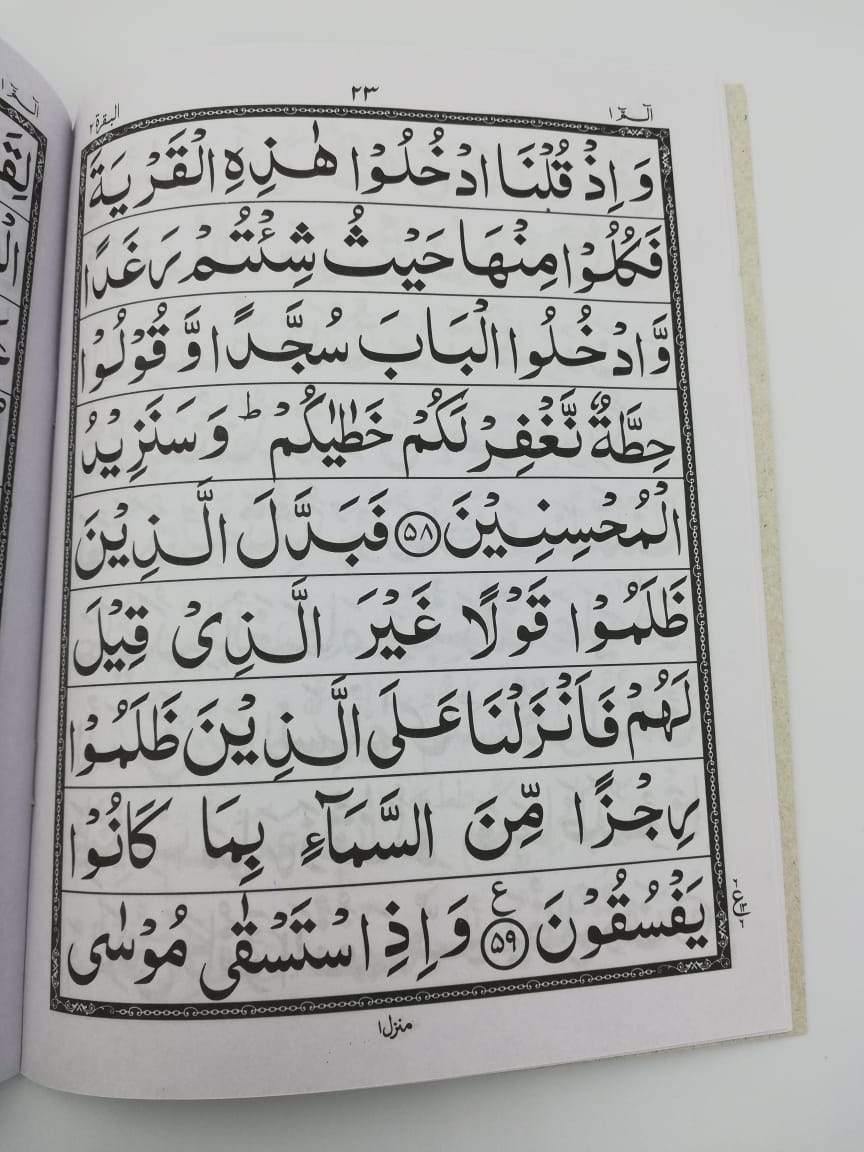 الٓمّٓ ١
٢٣
البقرة ٢
وَ اِذْ قُلْنَا ادْخُلُوْا هٰذِهِ الْقَرْيَةَ
فَكُلُوْا مِنْهَا حَيْثُ شِئْتُمْ رَغَدًا
وَّادْخُلُوا الْبَابَ سُجَّدًا وَّ قُوْلُوْا
حِطَّةٌ نَّغْفِرْ لَكُمْ خَطٰيٰكُمْ ؕ وَ سَنَزِيْدُ
الْمُحْسِنِيْنَ ۵۸ فَبَدَّلَ الَّذِيْنَ
ظَلَمُوْا قَوْلًا غَيْرَ الَّذِىْ قِيْلَ
لَهُمْ فَاَنْزَلْنَا عَلَى الَّذِيْنَ ظَلَمُوْا
رِجْزًا مِّنَ السَّمَآءِ بِمَا كَانُوْا
يَفْسُقُوْنَ ۵۹ ع وَ اِذِ اسْتَسْقٰى مُوْسٰى
منزل ١